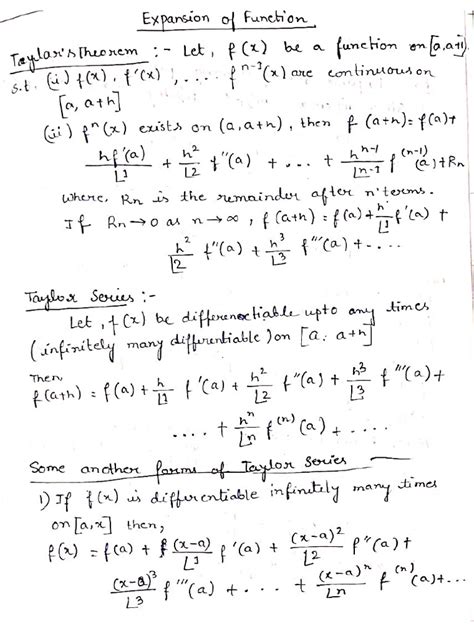 Expansion of Function
Taylar's Theorem :- Let, f(x) be a function on [a,a+h]
s.t. (i) f(x), f'(x), .... f^{n-1}(x) are continuous on
[a, a+h]
(ii) f^n(x) exists on (a,a+h), then f(a+h) = f(a)+
hf'(a)/⌊1 + h^2/⌊2 f''(a) + ... + h^{n-1}/⌊n-1 f^{(n-1)}(a) + Rn
where, Rn is the remainder after n' terms.
If Rn→0 as n→∞, f(a+h) = f(a) + h/⌊1 f'(a) +
h^2/⌊2 f''(a) + h^3/⌊3 f'''(a) + ....
Taylor Series :-
Let, f(x) be differenctiable upto any times
(infinitely many differentiable) on [a, a+h]
Then,
f(a+h) = f(a) + h/⌊1 f'(a) + h^2/⌊2 f''(a) + h^3/⌊3 f'''(a) +
.... + h^n/⌊n f^{(n)}(a) + ....
Some another forms of Taylor Series
1) If f(x) is differentiable infinitely many times
on [a,x] then,
f(x) = f(a) + (x-a)/⌊1 f'(a) + (x-a)^2/⌊2 f''(a) +
(x-a)^3/⌊3 f'''(a) + ... + (x-a)^n/⌊n f^{(n)}(a) + ...